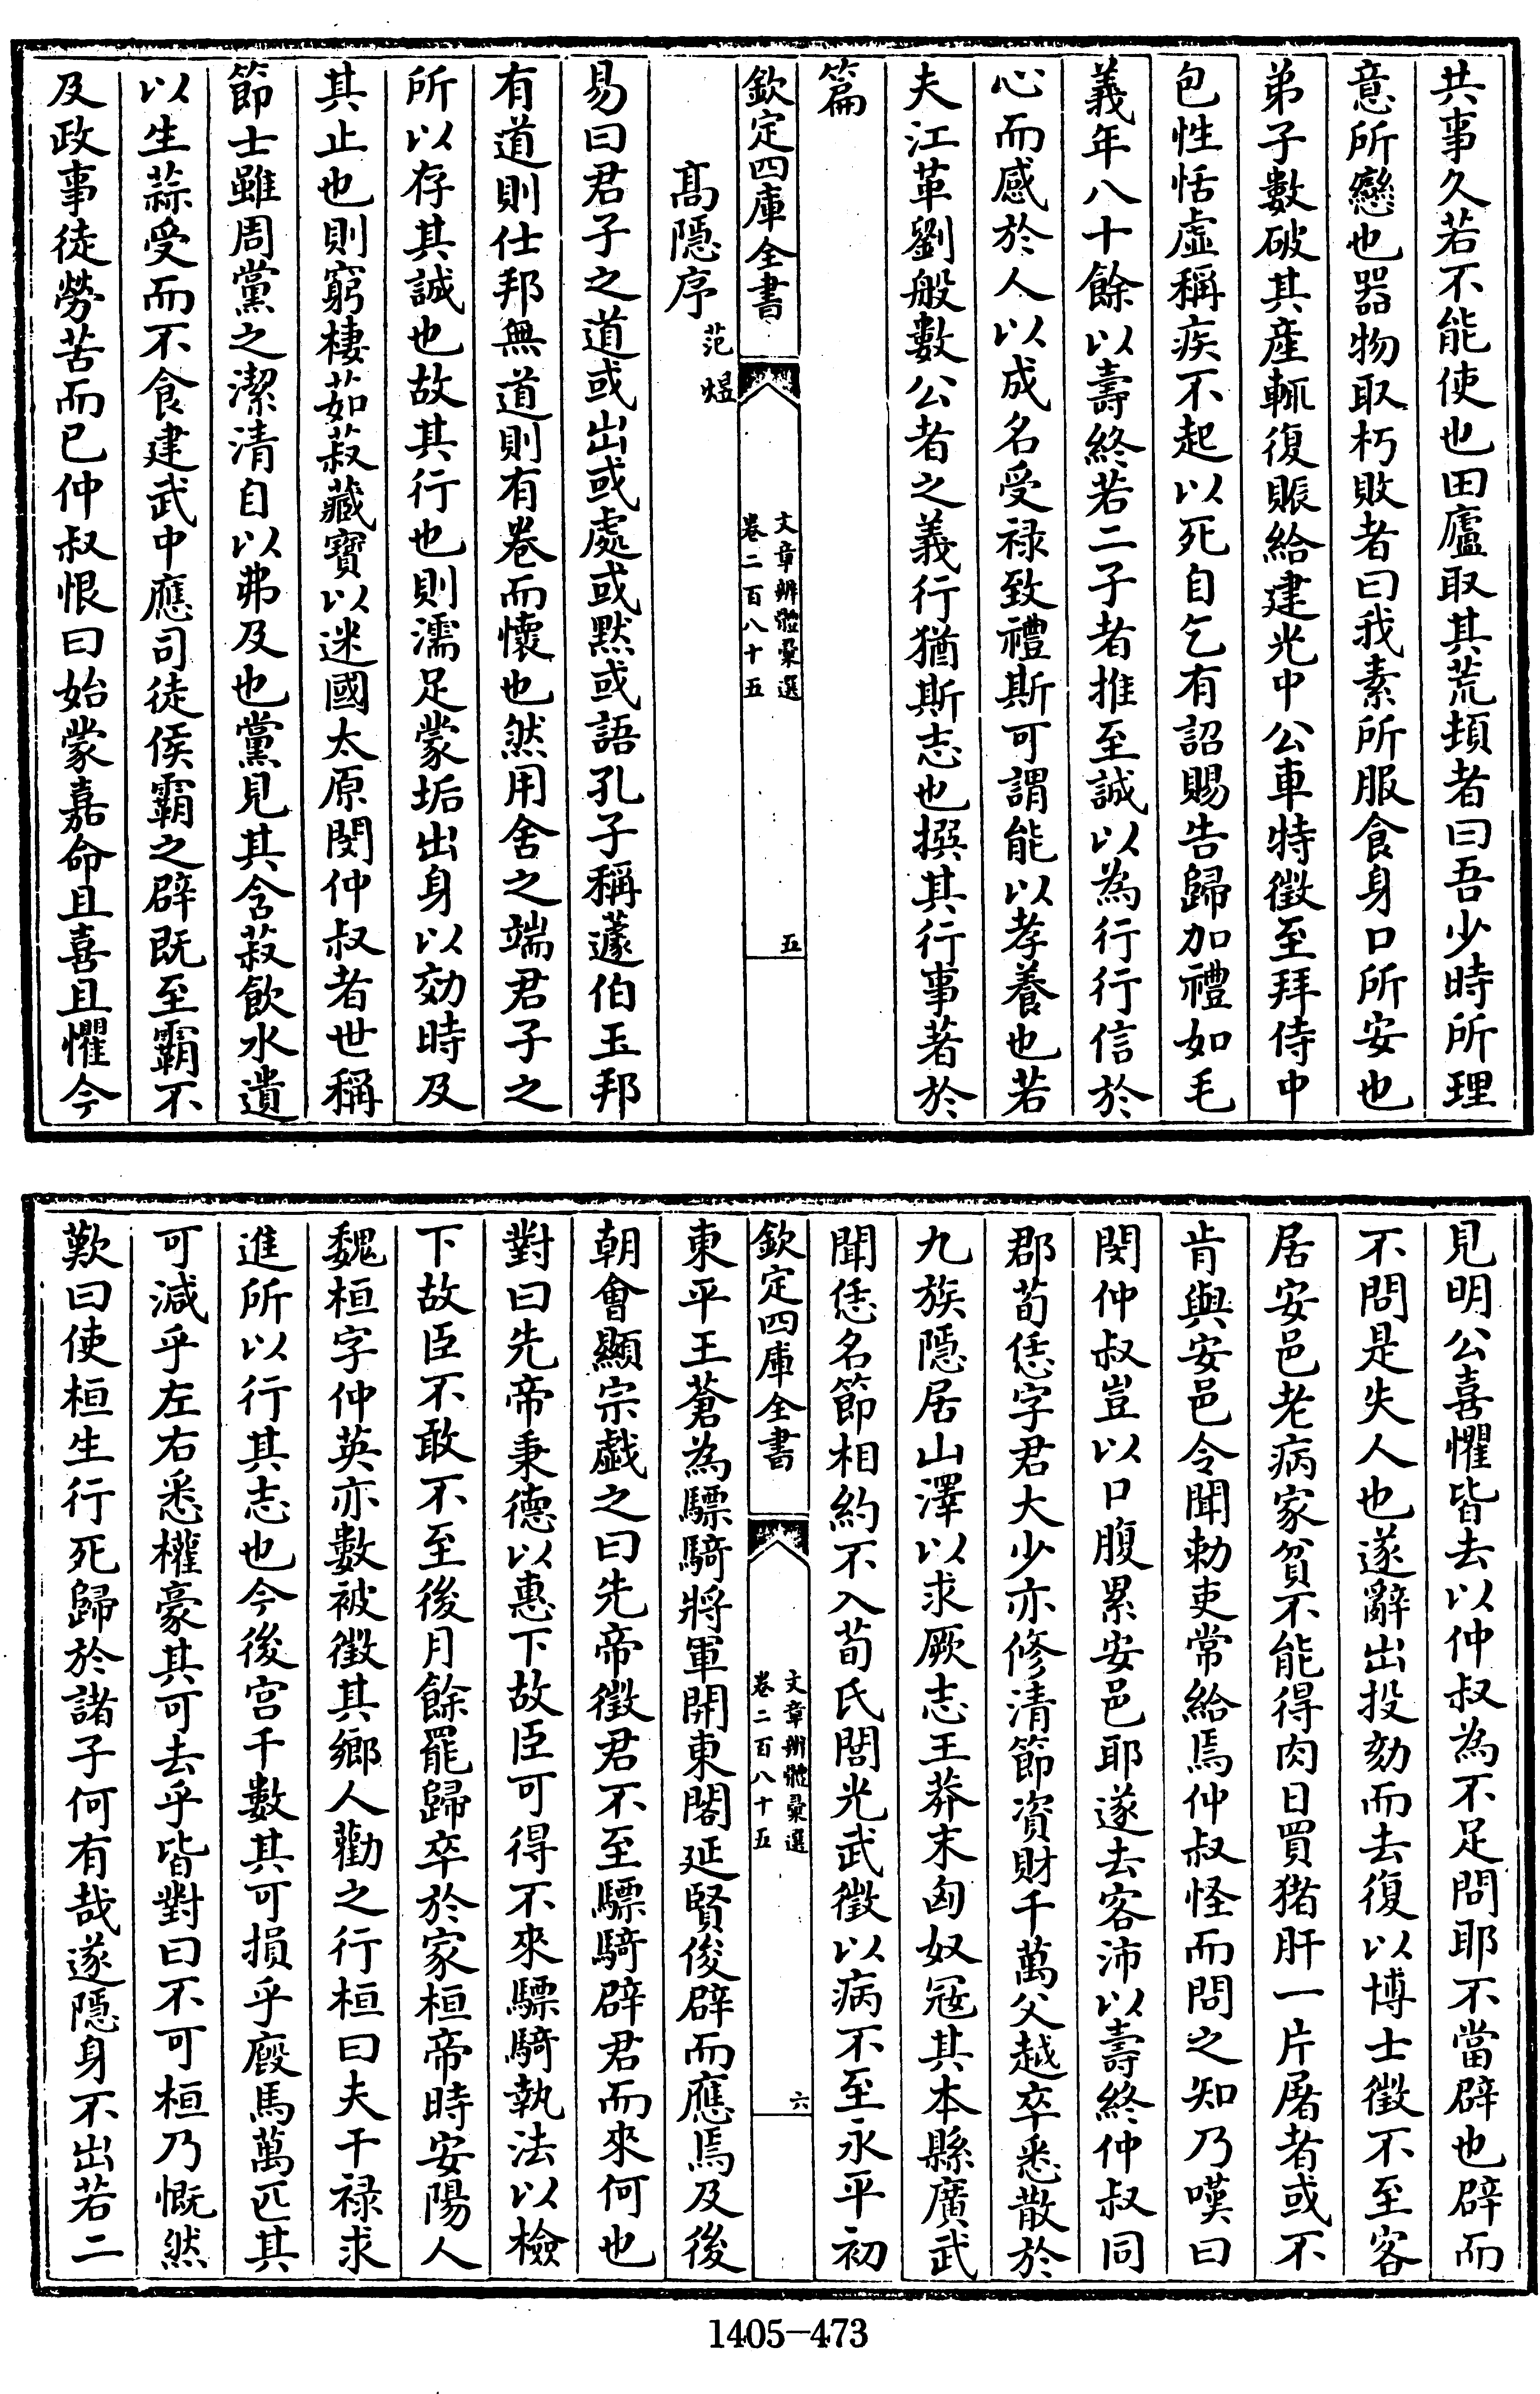 共事久若不能使也田廬取其荒頓者曰吾少時所理
意所戀也器物取朽敗者曰我素所服食身口所安也
弟子數破其產輒復賑給建光中公車特徵至拜侍中
包性恬虛稱疾不起以死自乞有詔賜告歸加禮如毛
義年八十餘以壽終若二子者推至誠以為行行信於
心而感於人以成名受禄致禮斯可謂能以孝養也若
夫江革劉般數公者之義行猶斯志也撰其行事著於
篇
欽定四庫全書
文章辨體彙選
卷二百八十五
五
高隱序 范煜
易曰君子之道或出或處或默或語孔子稱蘧伯玉邦
有道則仕邦無道則有卷而懷也然用舍之端君子之
所以存其誠也故其行也則濡足蒙垢出身以効時及
其止也則窮棲茹菽藏寶以迷國太原閔仲叔者世稱
節士雖周黨之潔清自以弗及也黨見其含菽飲水遺
以生蒜受而不食建武中應司徒侯霸之辟既至霸不
及政事徒勞苦而已仲叔恨曰始蒙嘉命且喜且懼今
見明公喜懼皆去以仲叔為不足問耶不當辟也辟而
不問是失人也遂辭出投劾而去復以博士徵不至客
居安邑老病家貧不能得肉日買猪肝一片屠者或不
肯與安邑令聞勅吏常給焉仲叔怪而問之知乃嘆曰
閔仲叔豈以口腹累安邑耶遂去客沛以壽終仲叔同
郡荀恁字君大少亦修清節資財千萬父越卒悉散於
九族隱居山澤以求厥志王莽末匈奴寇其本縣廣武
聞恁名節相約不入荀氏閭光武徵以病不至永平初
欽定四庫全書
文章辨體彙選
卷二百八十五
六
東平王蒼為驃騎將軍開東閣延賢俊辟而應焉及後
朝會顯宗戲之曰先帝徵君不至驃騎辟君而來何也
對曰先帝秉德以惠下故臣可得不來驃騎執法以檢
下故臣不敢不至後月餘罷歸卒於家桓帝時安陽人
魏桓字仲英亦數被徵其鄉人勸之行桓曰夫干禄求
進所以行其志也今後宮千數其可損乎廐馬萬匹其
可減乎左右悉權豪其可去乎皆對曰不可桓乃慨然
歎曰使桓生行死歸於諸子何有哉遂隱身不出若二
1405-473